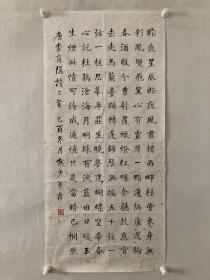 昨夜星辰昨夜風畫樓西畔桂堂東身無
彩鳳雙飛翼心有靈犀一點通隔座送鈎
春酒暖分曹射覆蠟燈紅嗟余聽鼓應官
去走馬蘭臺類轉蓬錦瑟無端五十弦一
弦一柱思華年莊生曉夢迷蝴蝶望帝春
心託杜鵑滄海月明珠有淚藍田日暖玉
生煙此情可待成追憶只是當時已惘然
唐李商隱詩二首 己酉冬月 少